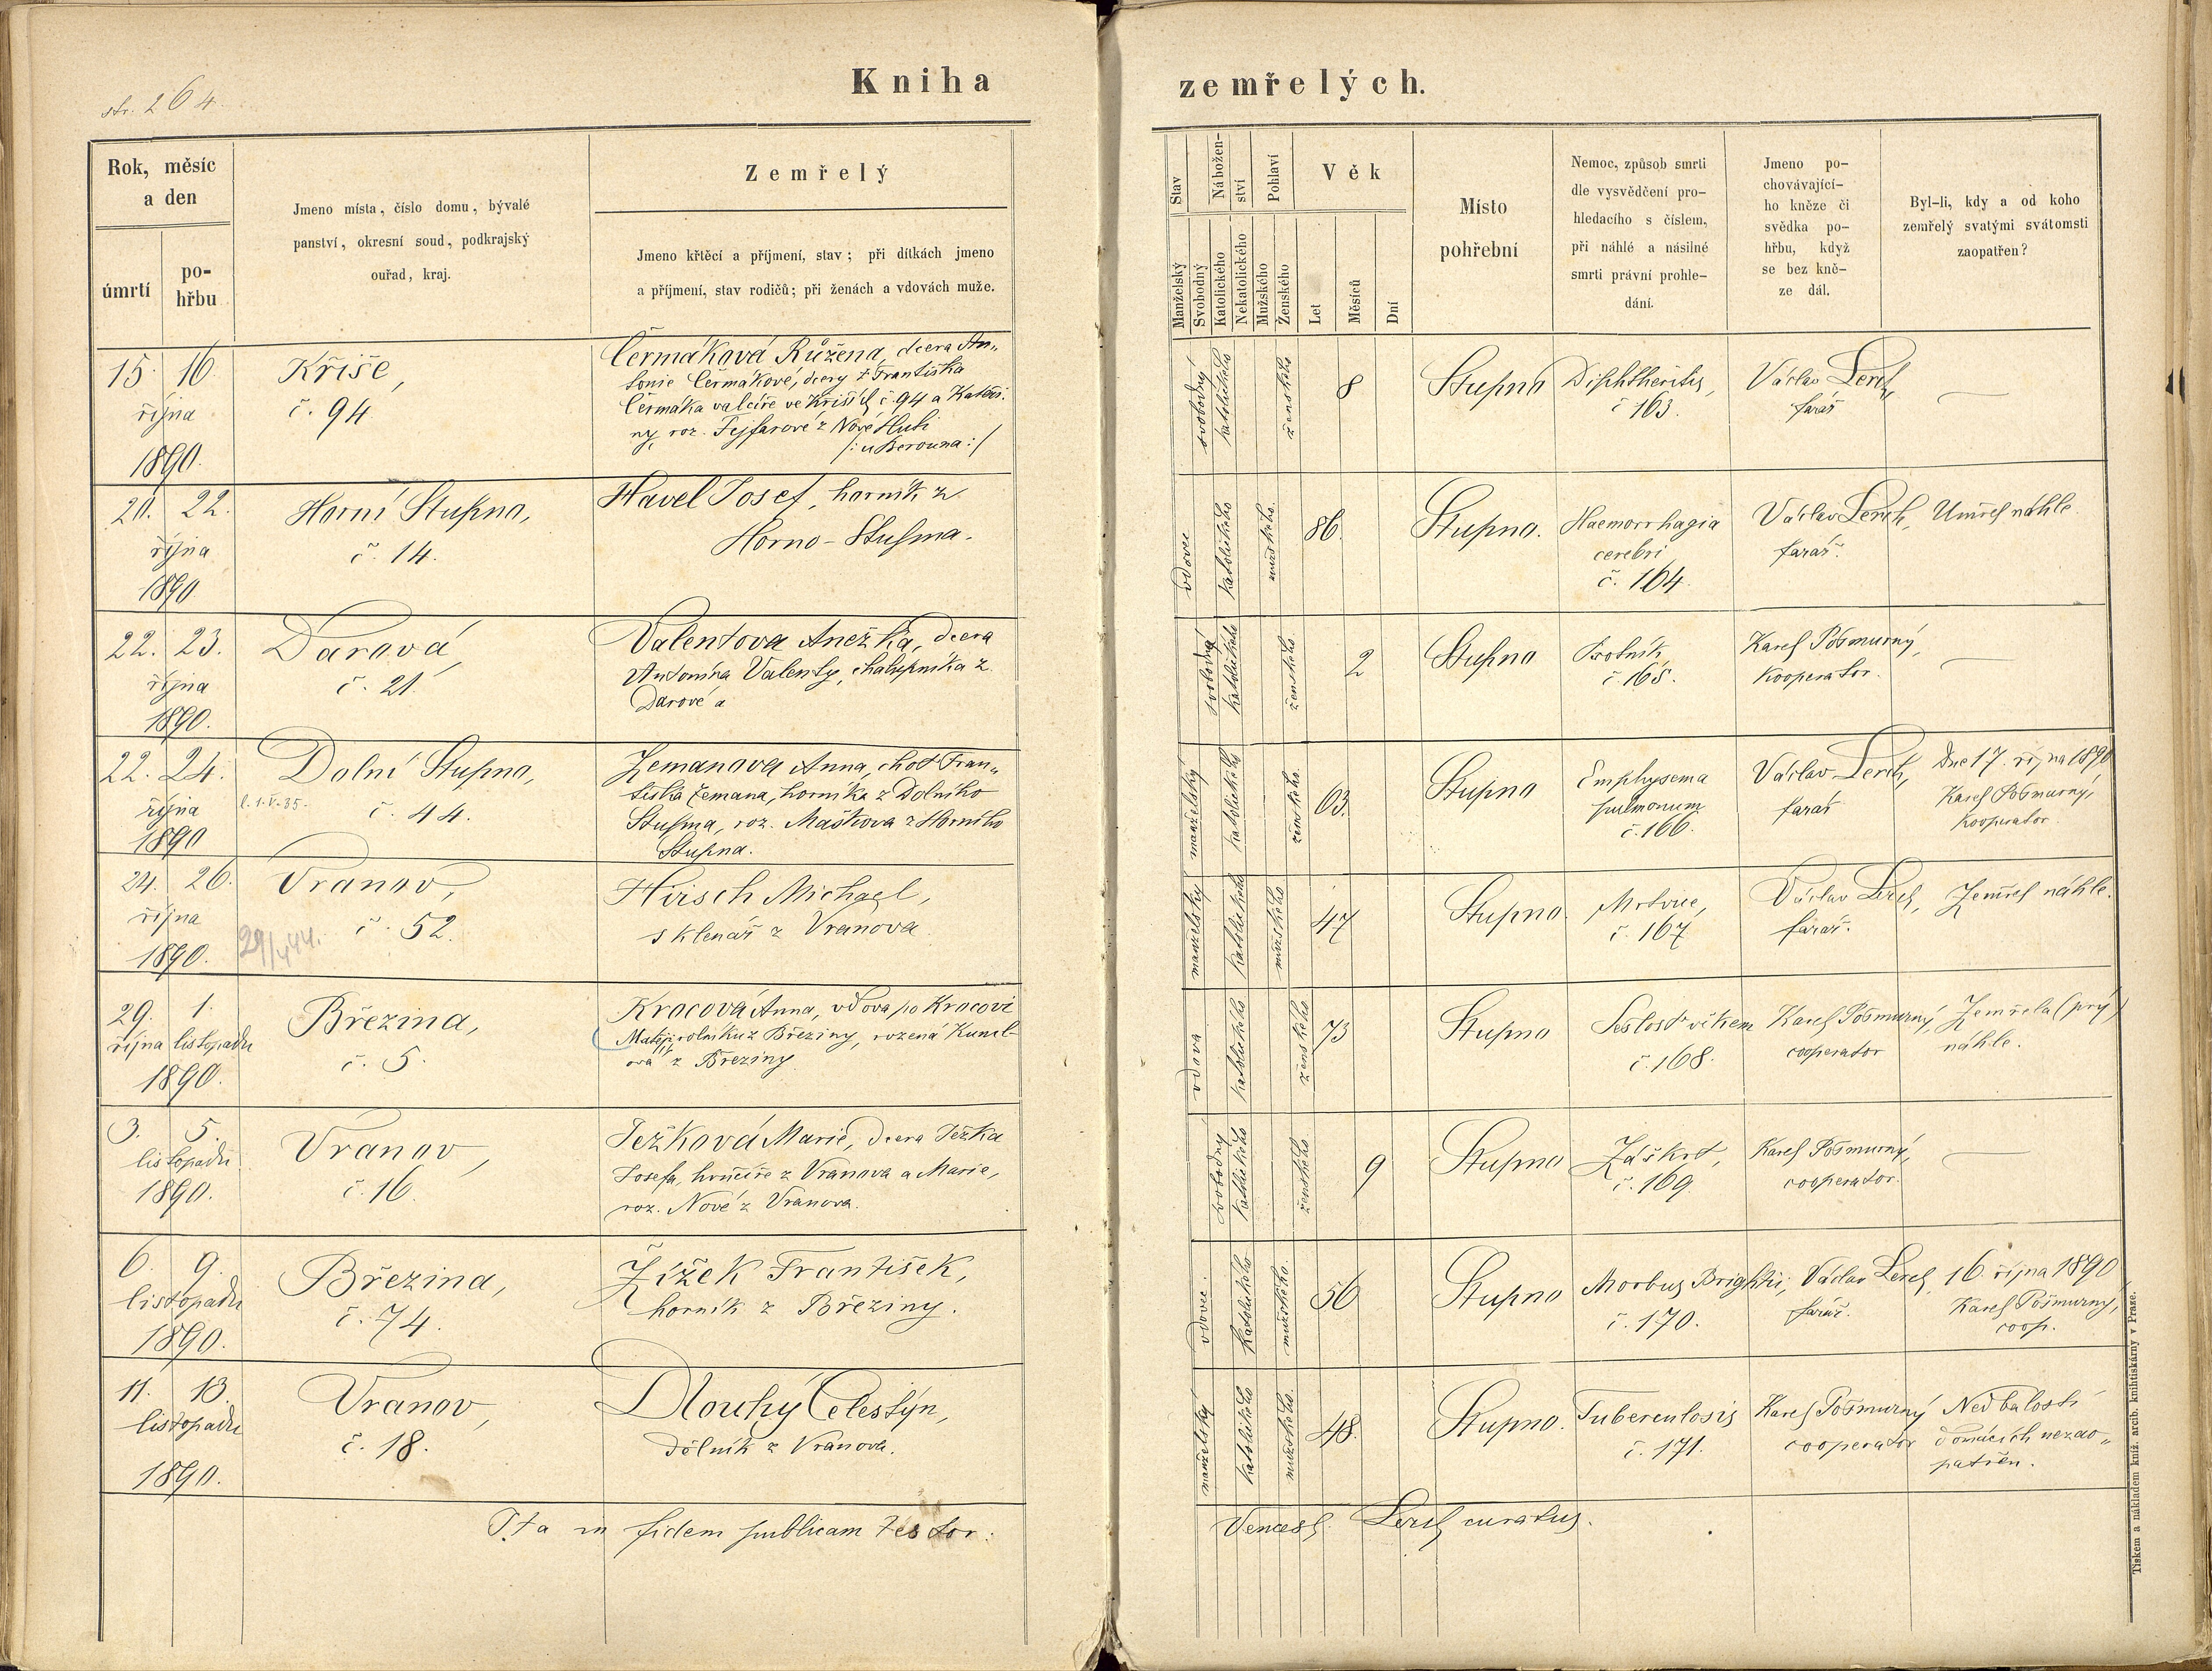 str. 264.
Kniha zemřelých.
Rok, měsíc
a den
úmrtí
po-
hřbu
Jmeno místa, číslo domu, bývalé
panství, okresní soud, podkrajský
ouřad, kraj.
Zemřelý
Jmeno křtěcí a příjmení, stav; při dítkách jmeno
a příjmení, stav rodičů; při ženách a vdovách muže.
Stav
Manželský
Svobodný
Nábožen-
ství
Katolického
Nekatolického
Pohlaví
Mužského
Ženského
Věk
Let
Měsíců
Dní
Místo
pohřební
Nemoc, způsob smrti
dle vysvědčení pro-
hledacího s číslem,
při náhlé a násilné
smrti právní prohle-
dání.
Jmeno po-
chovávající-
ho kněze či
svědka po-
hřbu, když
se bez kně-
ze dál.
Byl-li, kdy a od koho
zemřelý svatými svátomsti
zaopatřen?
15. 16.
října
1890.
Kříše,
č. 94.
Čermáková Růžena, dcera An„
tonie Čermákové, dcery † Františka
Čermáka valcíře ve Kříších č. 94 a Kateři.
ny roz. Fejfarové z Nové Huti
/: u Berouna :/
svobodný
katolického
ženského
8
Stupno
Diphtheritis,
č 163.
Václav Lerch,
farář
—
20. 22.
října
1890
Horní Stupno,
č. 14.
Havel Josef, horník z
Horno-Stupna.
vdovec
katolického
mužského.
86.
Stupno.
Haemorrhagia
cerebri
č. 164.
Václav Lerch,
farář.
Umřel náhle.
22. 23.
října
1890.
Darová,
č. 21.
Valentova Anežka, dcera
Antonína Valenty, chalupníka z
Darové a
svobodná
katolického
ženského.
2
Stupno
Psotník,
č. 165.
Karel Pošmurný,
kooperator.
—
22. 24.
října
1890
Dolní Stupno,
l. 1.V.35.
č. 44.
Zemanova Anna, choť Fran„
tiška Zemana, horníka z Dolního
Stupna, roz. Maškova z Horního
Stupna.
manželský
katolického
ženského.
63.
Stupno
Emphysema
pulmonum
č. 166.
Václav Lerch,
farář
Dne 17. října 1890
Karel Pošmurný,
kooperator.
24. 26.
října
1890.
Vranov,
č. 52.
Hirsch Michael,
sklenář z Vranova.
manželský
katolického
mužského
47
Stupno.
Mrtvice,
č. 167
Václav Lerch,
farář.
Zemřel náhle.
29. 1.
října listopadu
1890.
Březina,
č. 5.
Krocová Anna, vdova po Krocovi
Matěji, rolníku z Březiny, rozená
ová z Březiny.
vdova
katolického
ženského
73
Stupno
Sešlost věkem
č. 168.
Karel Pošmurný
cooperator
Zemřela (prý)
náhle.
3. 5.
listopadu
1890.
Vranov,
č. 16.
Ježková Marie, dcera Ježka
Josefa, hrnčíře z Vranova a Marie,
roz. Nové z Vranova.
svobodný
katolického
ženského
9
Stupno
Záškrt,
č. 169.
Karel Pošmurný,
cooperator.
—
6. 9.
listopadu
1890.
Březina,
č. 74.
Žížek František,
horník z Březiny.
vdovec.
katolického
mužského.
56
Stupno
Morbus Brightii,
č. 170.
Václav Lerch,
farář.
16. října 1890
Karel Pošmurný,
coop.
11. 13.
listopadu
1890.
Vranov,
č. 18.
Dlouhý Celestýn,
dělník z Vranova.
manželský
katolického
mužského.
48.
Stupno.
Tuberculosis
č. 171.
Karel Pošmurný
cooperator
Nedbalostí
domácích nezao„
patřen.
Ita in fidem publicam testor:
Vencesl. Lerch curatus.
Tiskem a nákladem kníž. arcib. knihtiskárny v Praze.